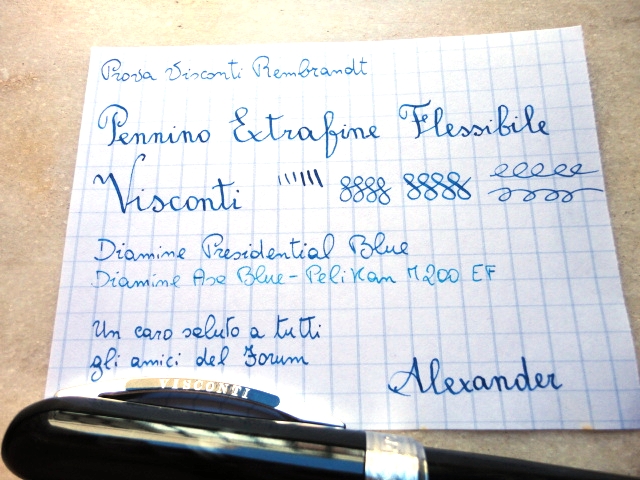 Prova Visconti Rembrandt
Pennino Extrafine Flessibile
Visconti
Diamine Presidential Blue
Diamine Asa Blue - Pelikan M200 EF
Un caro saluto a tutti
gli amici del Forum
Alexander
VISCONTI